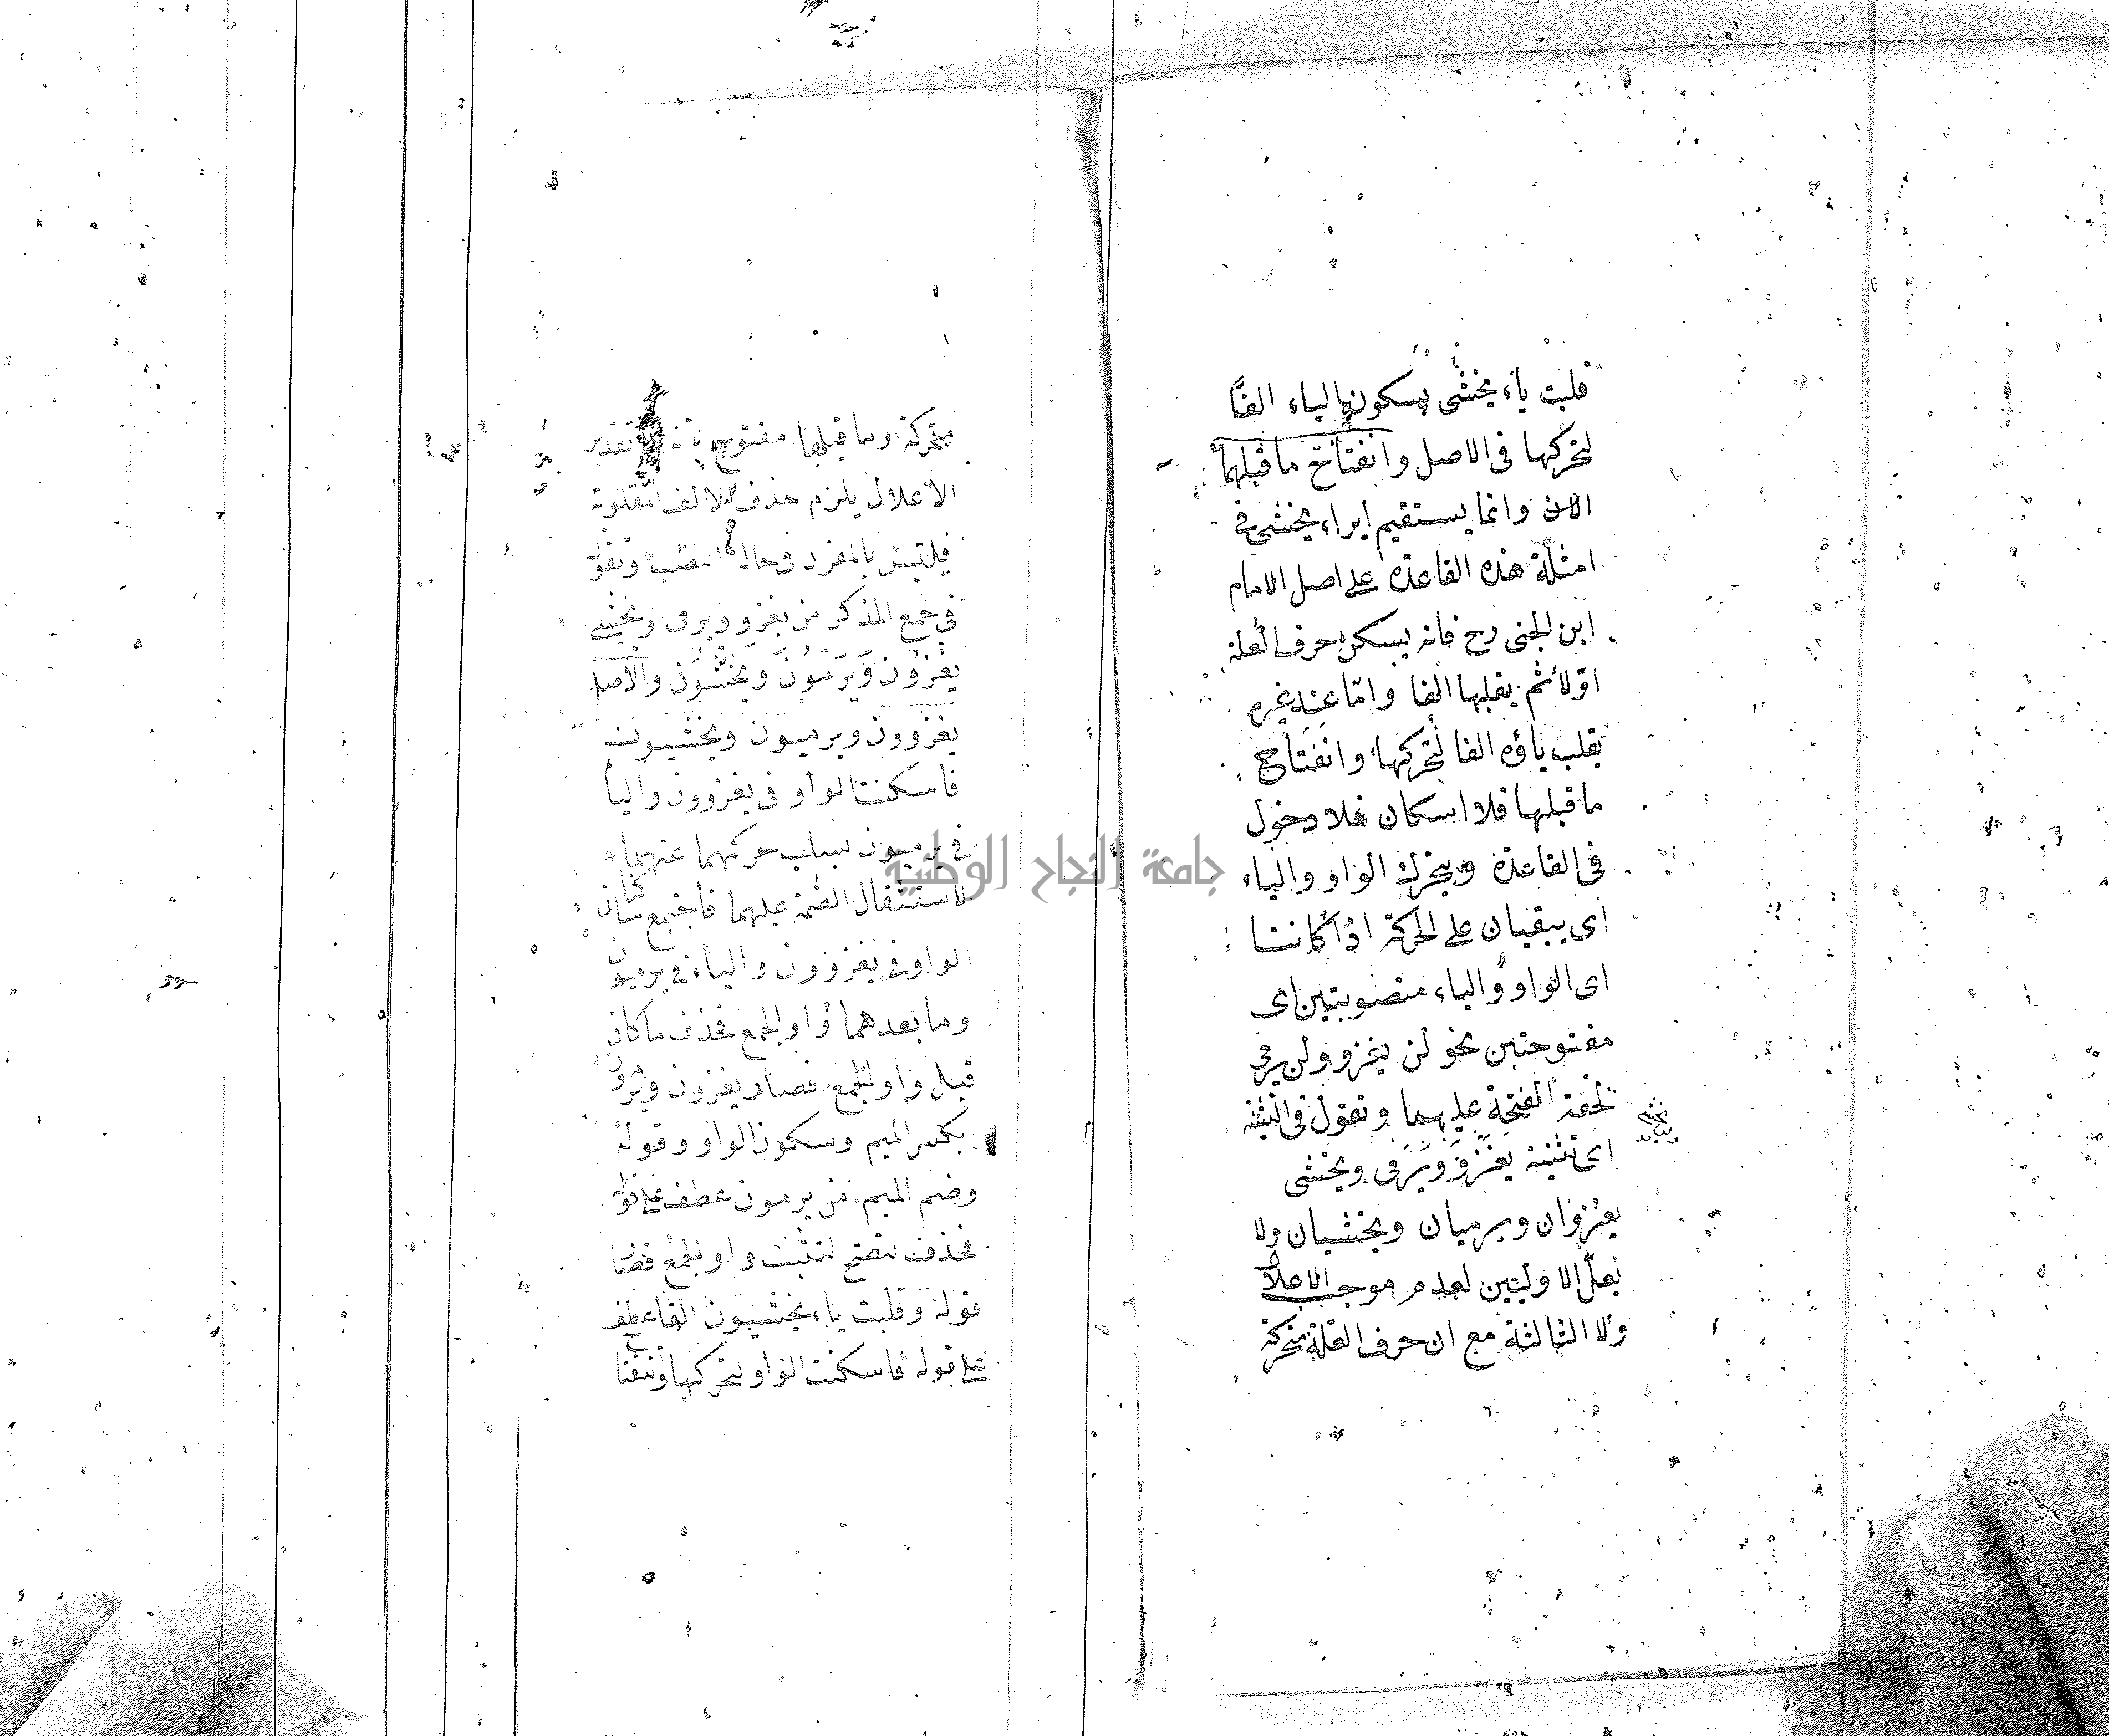 قلبت ياء يخشى بسكون الياء الفًا
لتحركها فى الاصل وانفتاح ما قبلها
الان وانما يستقيم ايراد يخشى فى
امثلة هذه القاعدة على اصل الامام
ابن الجنى رح فانه يسكن حرف العلة
اوّلا ثم يقلبها الفا وامّا عند غيره
يقلب ياؤه الفا لتحركها وانفتاح
ما قبلها فلا اسكان فلا دخول
فى القاعدة ويتحرك الواو والياء
اى يبقيان على الحركة اذا كانتا
اى الواو والياء منصوبتين اى
مفتوحتين نحو لن يغزو ولن يرمى
لخفة الفتحة عليهما وتقول فى التثنية
اى تثنية يغزو ويرمى ويخشى
يغزوان ويرميان ويخشيان ولا
يعلّ الاوليين لعدم موجب الاعلال
ولا الثالثة مع ان حرف العلة متحركة
متحركة وما قبلها مفتوح تقدير
الاعلال يلزم حذف الالف المقلوبة
فيلتبس بالمفرد فى حالة النصب وتقول
فى جمع المذكر من يغزو ويرمى ويخشى
يغزون ويرمون ويخشون والاصل
يغزوون ويرميون ويخشيون
فاسكنت الواو فى يغزوون واليا
فى يرميون بسلب حركتهما عنهما
لاستثقال الضمة عليهما فاجتمع ساكنان
الواو فى يغزوون والياء فى يرميون
وما بعدهما واو الجمع فحذف ما كان
قبل واو الجمع فصار يغزون ويرمون
بكسر الميم وسكون الواو وقوله
وضم الميم من يرمون عطف على قوله
فحذف لتصح لتثبت واو الجمع
قوله وقلبت ياء يخشيون الفا عطف
على قوله فاسكنت الواو لتحركها وانفتا
جامعة النجاح الوطنية